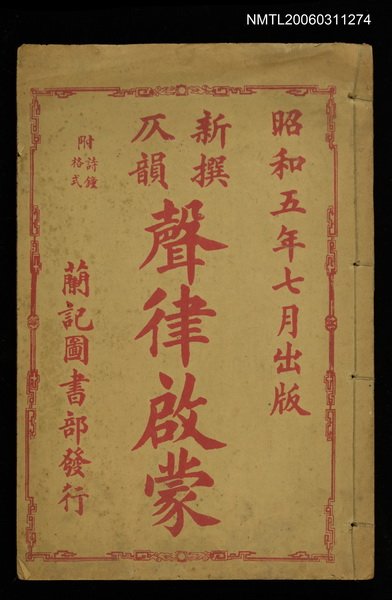 NMTL20060311274
昭和五年七月出版
新撰
仄韻
聲律啟蒙
附詩鐘格式
蘭記圖書部發行